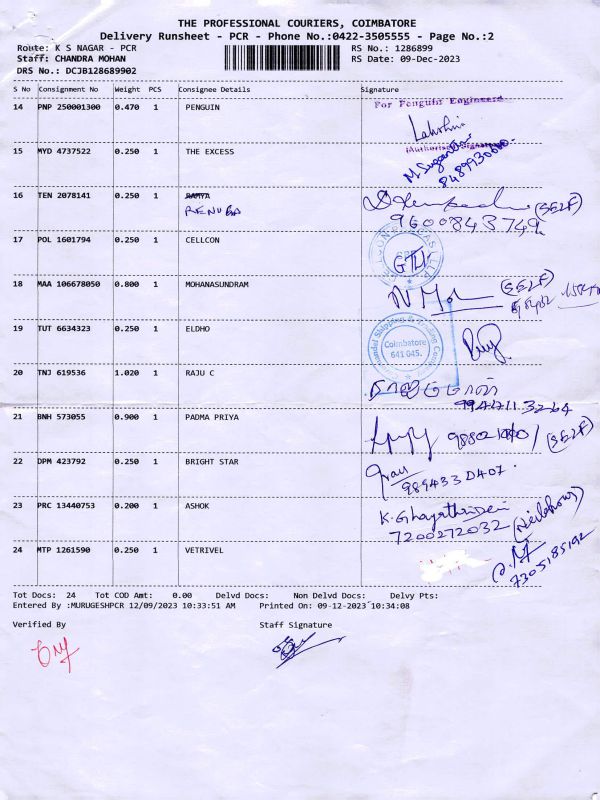 THE PROFESSIONAL COURIERS, COIMBATORE
Delivery Runsheet - PCR - Phone No.:0422-3505555 - Page No.:2
Route: K S NAGAR - PCR RS No.: 1286899
Staff: CHANDRA MOHAN RS Date: 09-Dec-2023
DRS No.: DCJB128689902
S No Consignment No Weight PCS Consignee Details Signature
14 PNP 250001300 0.470 1 PENGUIN For Penguin Engineers
Lakshmi
15 MYD 4737522 0.250 1 THE EXCESS
16 TEN 2078141 0.250 1 RAMYA (SELF)
RENUBA 9600843749
17 POL 1601794 0.250 1 CELLCON
18 MAA 106678050 0.800 1 MOHANASUNDRAM (SELF)
19 TUT 6634323 0.250 1 ELDHO
Coimbatore
641 045.
20 TNJ 619536 1.020 1 RAJU C
21 BNH 573055 0.900 1 PADMA PRIYA (SELF)
22 DPM 423792 0.250 1 BRIGHT STAR
23 PRC 13440753 0.200 1 ASHOK K. Ghayathridevi
7200272032
24 MTP 1261590 0.250 1 VETRIVEL
7305185192
Tot Docs: 24 Tot COD Amt: 0.00 Delvd Docs: Non Delvd Docs: Delvy Pts:
Entered By :MURUGESHPCR 12/09/2023 10:33:51 AM Printed On: 09-12-2023 10:34:08
Verified By Staff Signature